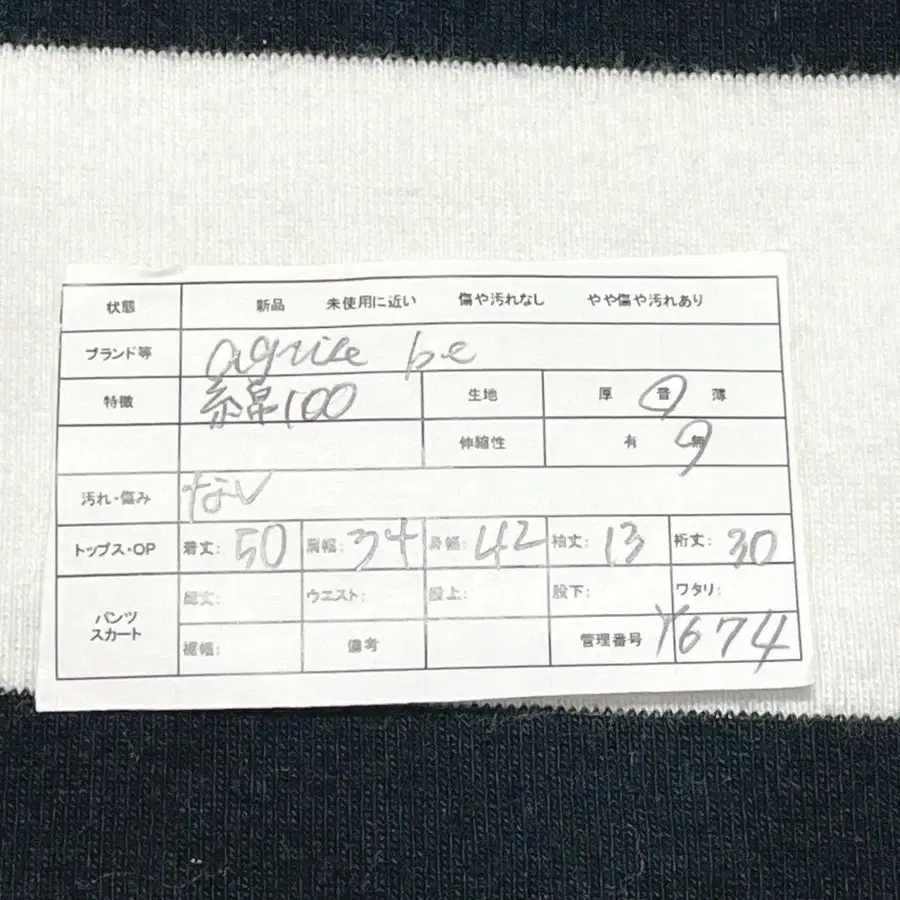 状態 新品 未使用に近い 傷や汚れなし やや傷や汚れあり
ブランド等 agnis be
特徴 綿100 生地 厚 普 薄
伸縮性 有 無
汚れ・傷み なし
トップス・OP 着丈: 50 肩幅: 34 身幅: 42 袖丈: 13 裄丈: 30
パンツ スカート 総丈: ウエスト: 股上: 股下: ワタリ:
裾幅: 備考 管理番号 Y674